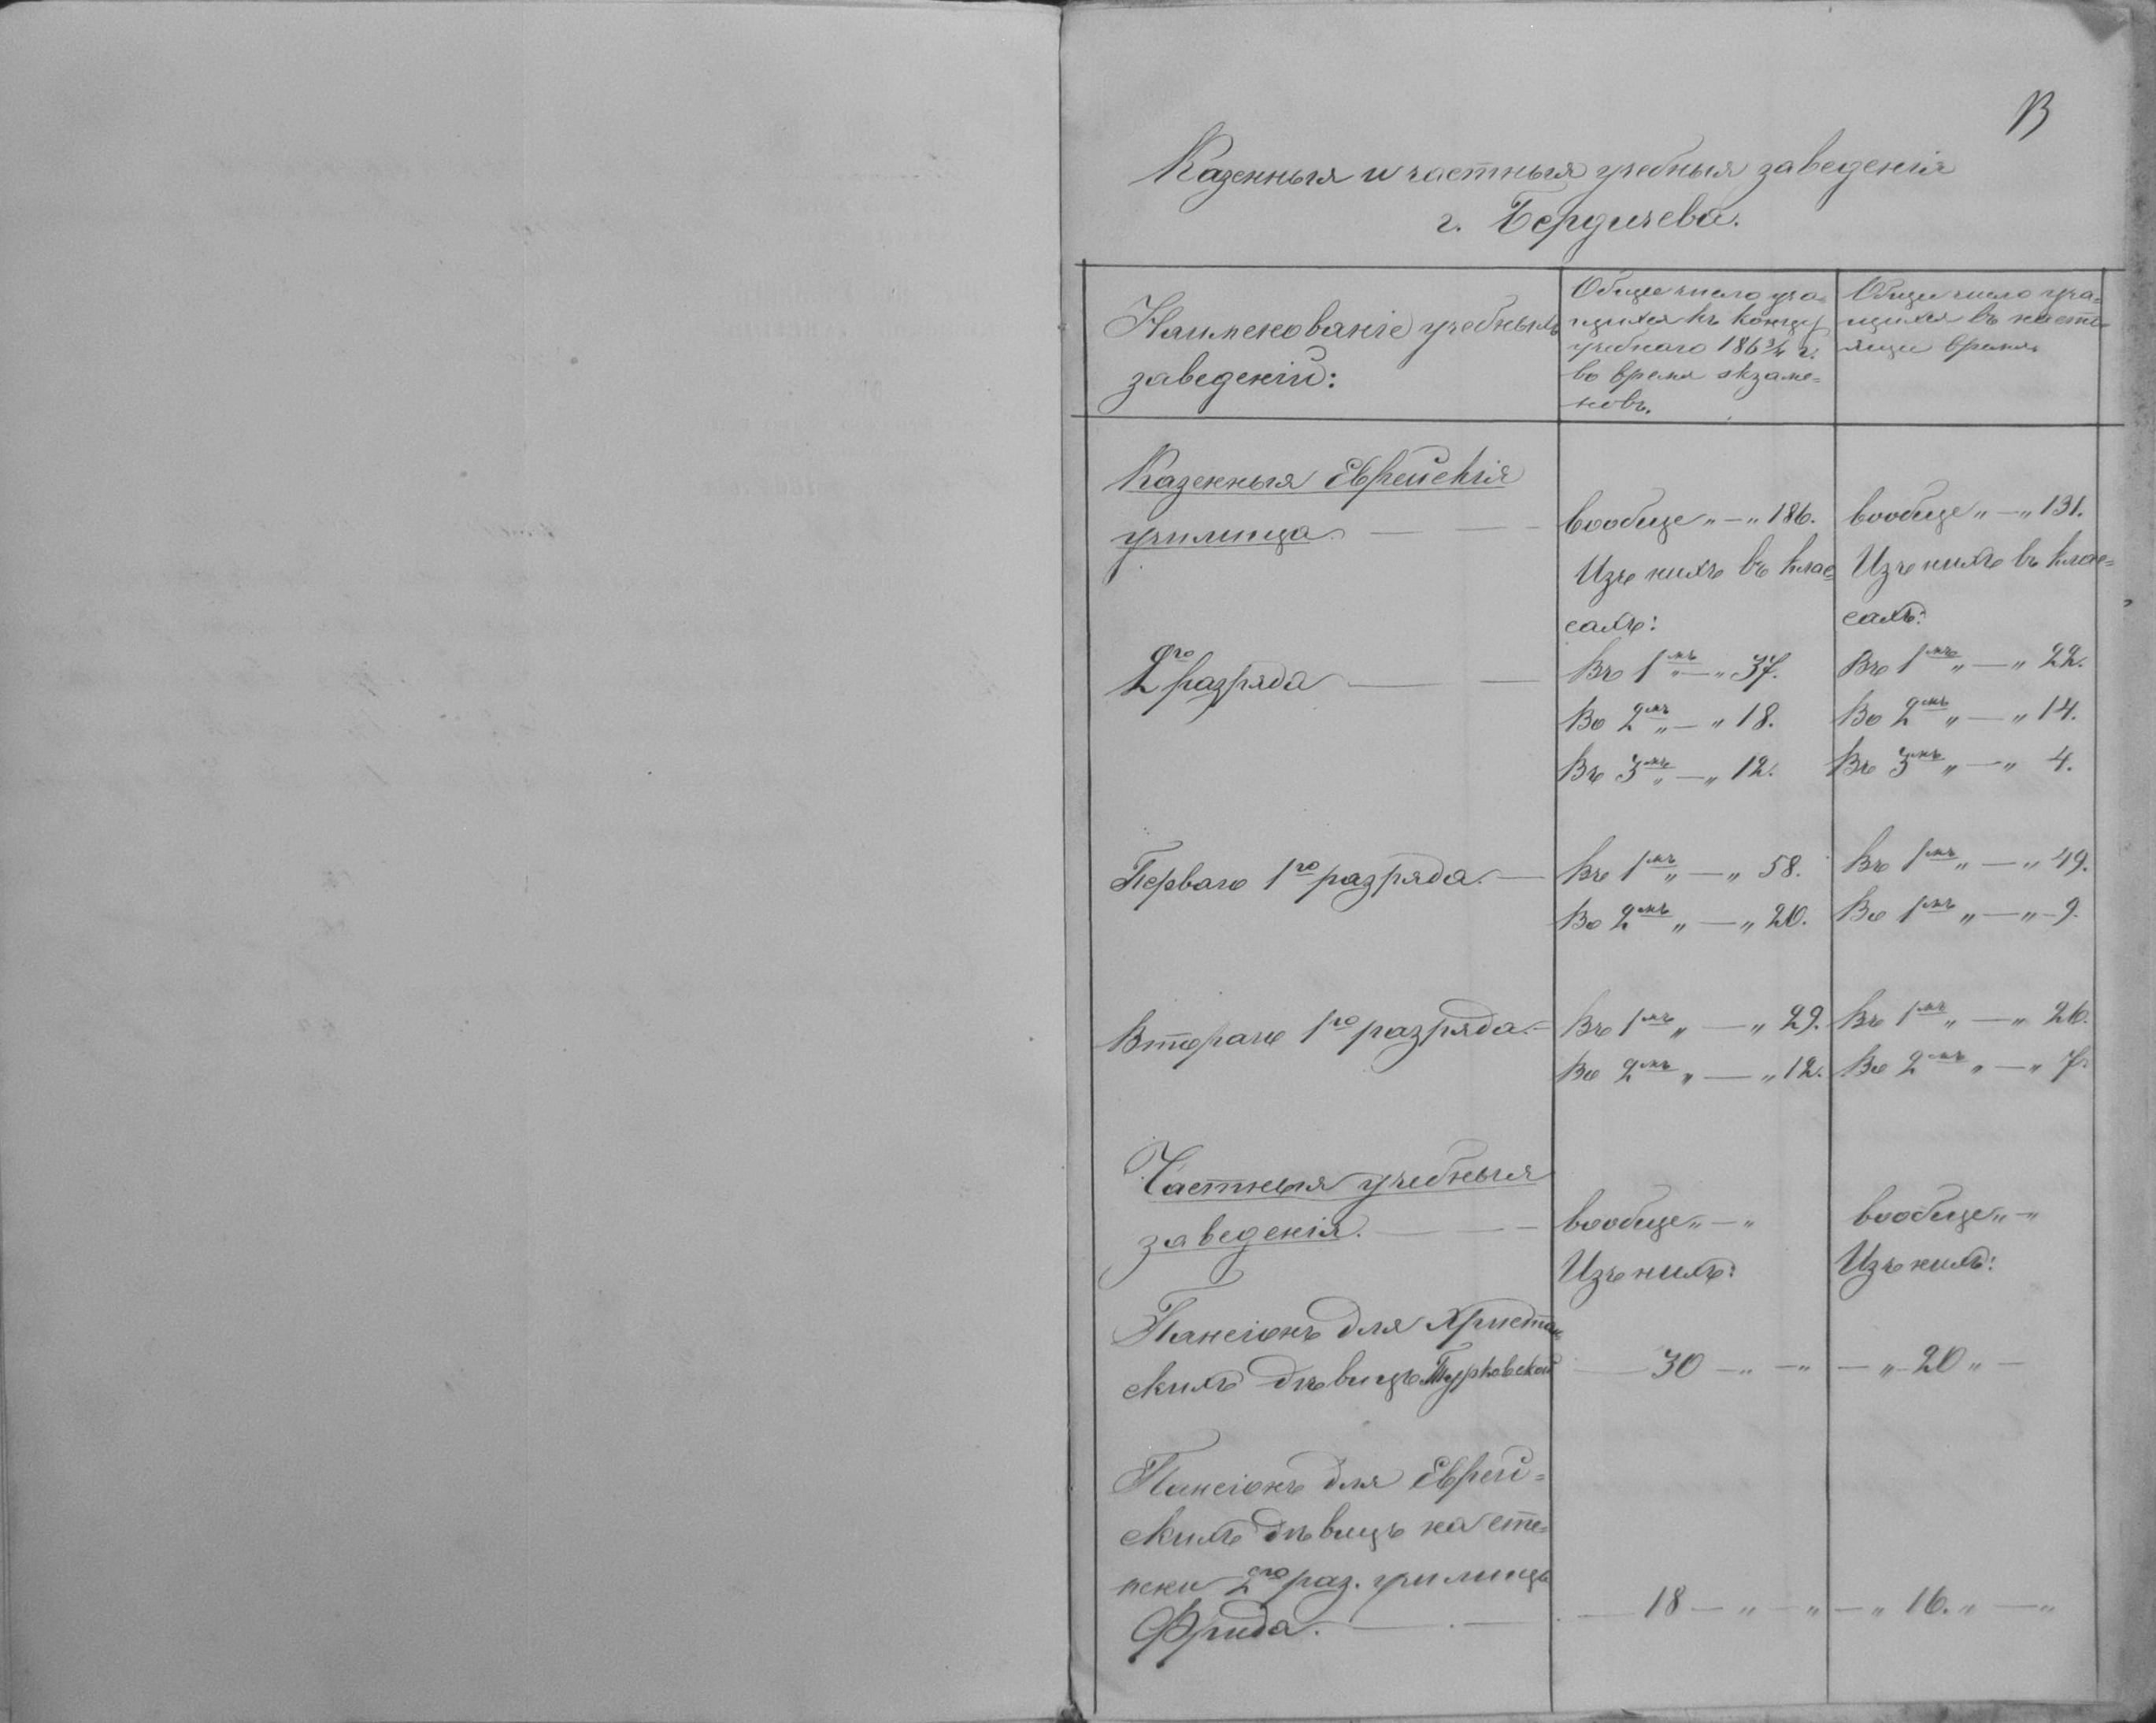 В
Казенныя и частныя учебныя заведенія
г. Бердичева.
Наименованіе учебныхъ
заведеній:
Общее число уча=
щихся къ концу
учебнаго 186¾ г.
во время экзаме=
новъ.
Общее число уча=
щихся въ насто=
ящее время
Казенныя Еврейскія
училища. — — — вообще „ — „ 186. вообще „ — „ 131.
Изъ нихъ въ клас= Изъ нихъ въ клас=
сахъ: сахъ:
2го разряда — — Въ 1мъ „ — „ 37. Въ 1мъ „ — „ 22.
Во 2мъ „ — „ 18. Во 2мъ „ — „ 14.
Въ 3мъ „ — „ 12. Въ 3мъ „ — „ 4.
Перваго 1го разряда. — Въ 1мъ „ — „ 58. Въ 1мъ „ — „ 49.
Во 2мъ „ — „ 20. Во 1мъ „ — „ 9.
Втораго 1го разряда. — Въ 1мъ „ — „ 29. Въ 1мъ „ — „ 26.
Во 2мъ „ — „ 12. Во 2мъ „ — „ 7.
Частныя учебныя
заведенія. — — — вообще „ — „ вообще „ — „
Изъ нихъ: Изъ нихъ:
Пансіонъ для Христіан
скихъ дѣвицъ Турковской — 30 — „ — „ — „ 20 „ —
Пансіонъ для Еврей=
скихъ дѣвицъ на сте=
пени 2го раз. училищъ
Фрида. — . — — 18 — „ — „ — „ 16. „ — „